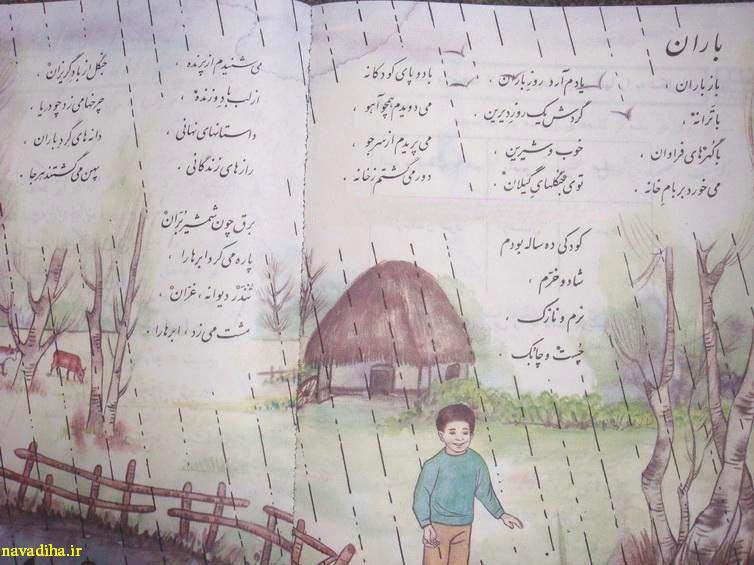 باران
باز باران ،
با ترانهٔ ،
با گهرهای فراوان
می خورد بر بام خانه .
یادم آرد روز باران ،
گردش یک روز دیرین ،
خوب و شیرین ،
توی جنگلهای گیلان .
کودکی ده ساله بودم
شاد و خرّم ،
نرم و نازک ،
چُست و چابک .
با دو پای کودکانه
می دویدم همچو آهو ،
می پریدم از سرِ جو ،
دور می گشتم ز خانه .
می شنیدم از پرنده ،
از لب باد وزنده ،
داستانهای نهانی ،
رازهای زندگانی .
برق چون شمشیر بُرّان
پاره می کرد ابرها را ،
تُندَر دیوانه ، غرّان
مشت می زد ، ابرها را .
جنگل از باد گریزان ،
چرخها می زد چو دریا ،
دانه های گِرد باران ،
پهن می گشتند هر جا .
navadiha.ir